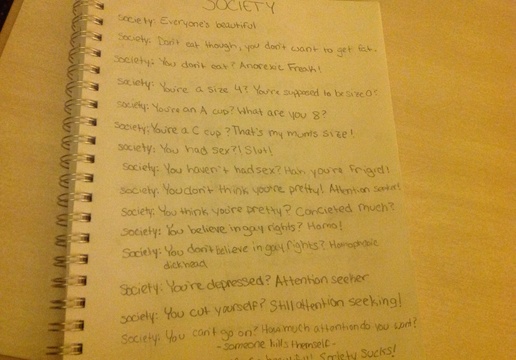 SOCIETY
Society: Everyone's beautiful
Society: Don't eat though, you don't want to get fat.
Society: You don't eat? Anorexic Freak!
Society: You're a size 4? You're supposed to be size 0!
Society: You're an A cup? What are you 8?
Society: You're a C cup? That's my mum's size!
Society: You had sex?! Slut!
Society: You haven't had sex? Hah you're Frigid!
Society: You don't think you're pretty! Attention seeker!
Society: You think you're pretty? Concieted much?
Society: You believe in gay rights? Homo!
Society: You don't believe in gay rights? Homophobic
dickhead
Society: You're depressed? Attention seeker
Society: You cut yourself? Still attention seeking!
Society: You can't go on? How much attention do you want?
-someone kills themself-
Society Sucks!